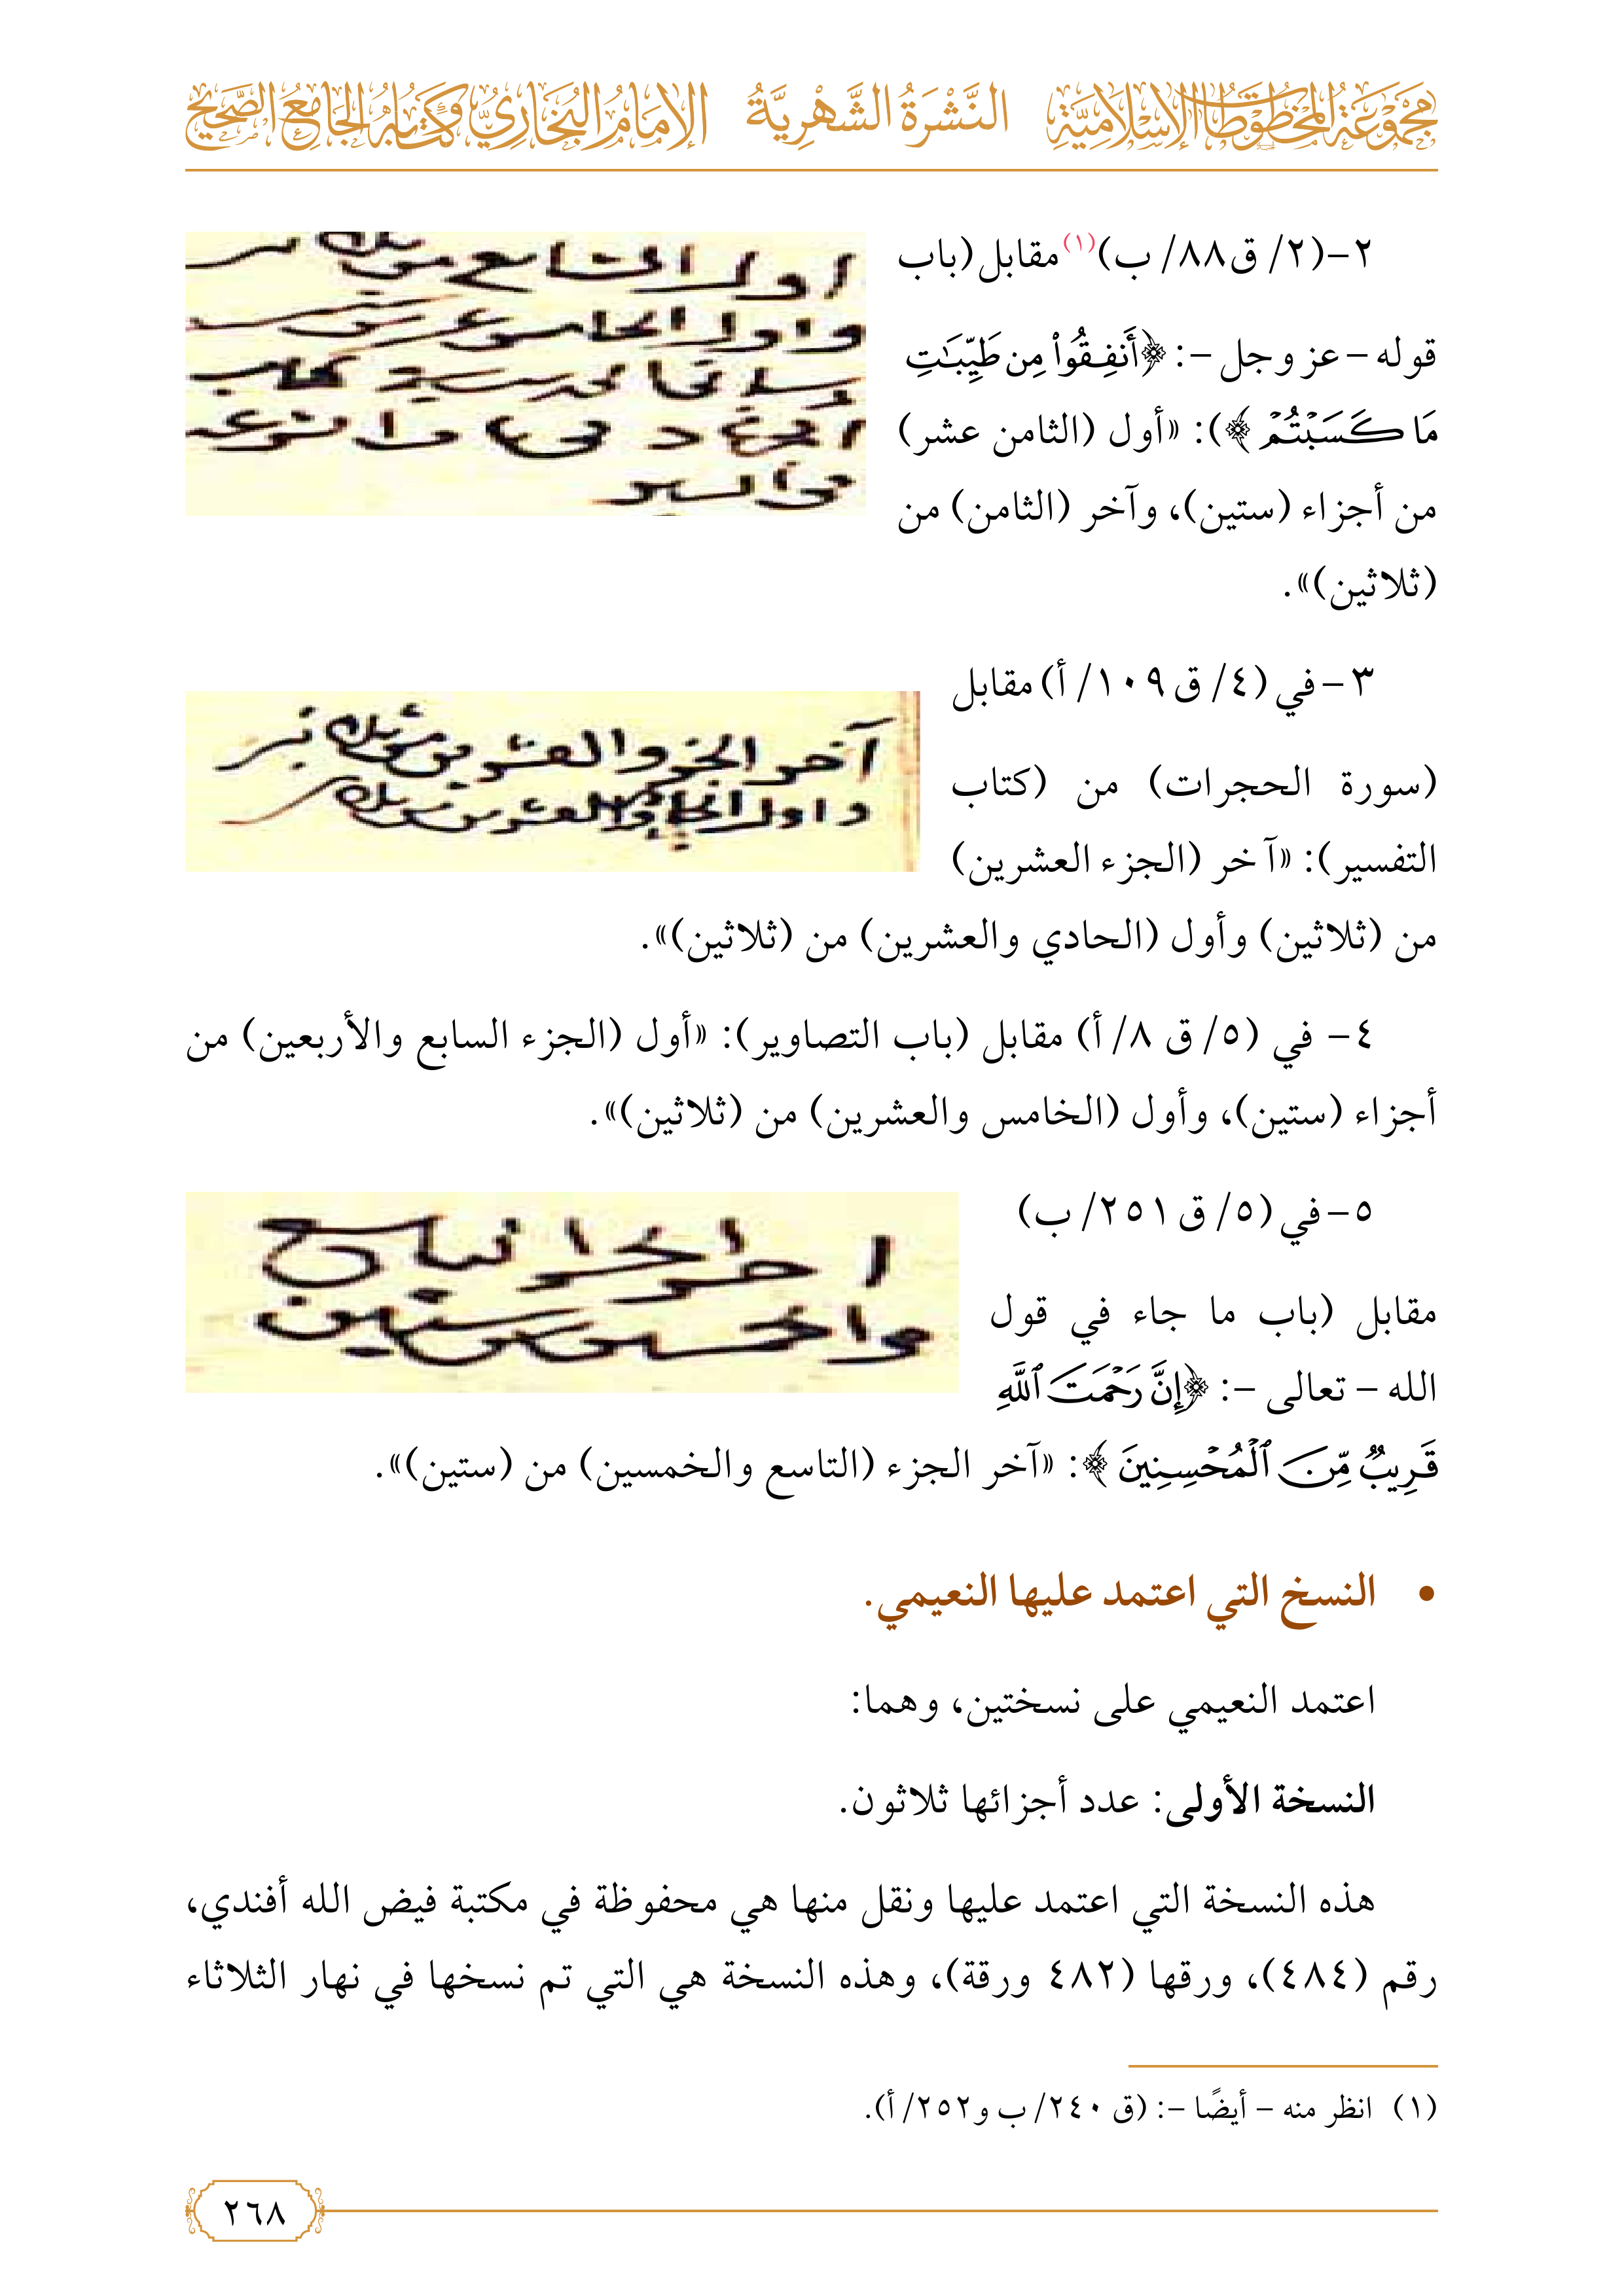 مَجْمُوعَةُ المَخْطُوطَاتِ الإِسْلَامِيَّةِ النَّشْرَةُ الشَّهْرِيَّةُ الإِمَامُ البُخَارِيُّ وَكِتَابُهُ الجَامِعُ الصَّحِيح
٢-(٢/ ق٨٨/ ب)(١) مقابل (باب
قوله – عز وجل –: ﴿أَنفِقُواْ مِن طَيِّبَٰتِ
مَا كَسَبۡتُمۡ﴾): «أول (الثامن عشر)
من أجزاء (ستين)، وآخر (الثامن) من
(ثلاثين)».
٣-في (٤/ ق ١٠٩/ أ) مقابل
(سورة الحجرات) من (كتاب
التفسير): «آخر (الجزء العشرين)
من (ثلاثين) وأول (الحادي والعشرين) من (ثلاثين)».
آخر الجزء والعشرين من ثلاثين
واول الحادي والعشرين من ثلاثين
٤- في (٥/ ق ٨/ أ) مقابل (باب التصاوير): «أول (الجزء السابع والأربعين) من
أجزاء (ستين)، وأول (الخامس والعشرين) من (ثلاثين)».
٥-في (٥/ ق ٢٥١/ ب)
مقابل (باب ما جاء في قول
الله – تعالى –: ﴿إِنَّ رَحۡمَتَ ٱللَّهِ
قَرِيبٞ مِّنَ ٱلۡمُحۡسِنِينَ﴾: «آخر الجزء (التاسع والخمسين) من (ستين)».
والخمسين من ستين
• النسخ التي اعتمد عليها النعيمي.
اعتمد النعيمي على نسختين، وهما:
النسخة الأولى: عدد أجزائها ثلاثون.
هذه النسخة التي اعتمد عليها ونقل منها هي محفوظة في مكتبة فيض الله أفندي،
رقم (٤٨٤)، ورقها (٤٨٢ ورقة)، وهذه النسخة هي التي تم نسخها في نهار الثلاثاء
(١) انظر منه – أيضًا –: (ق ٢٤٠/ ب و٢٥٢/ أ).
٢٦٨